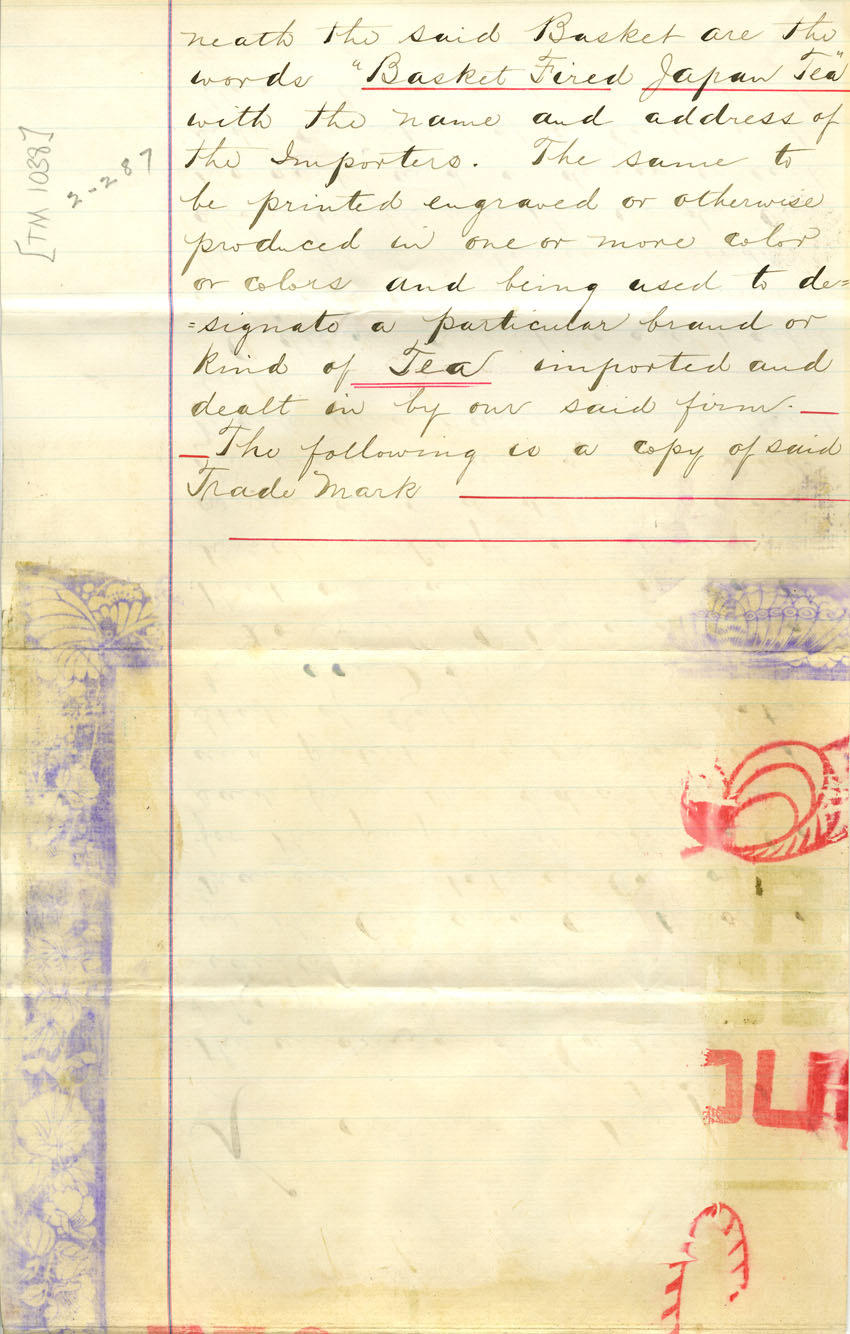 neath the said Basket are the
words "Basket Fired Japan Tea"
with the name and address of
the Importers. The same to
be printed engraved or otherwise
produced in one or more color
or colors and being used to de=
=signate a particular brand or
kind of Tea imported and
dealt in by our said firm.
The following is a copy of said
Trade Mark
[TM 1038]
2-287